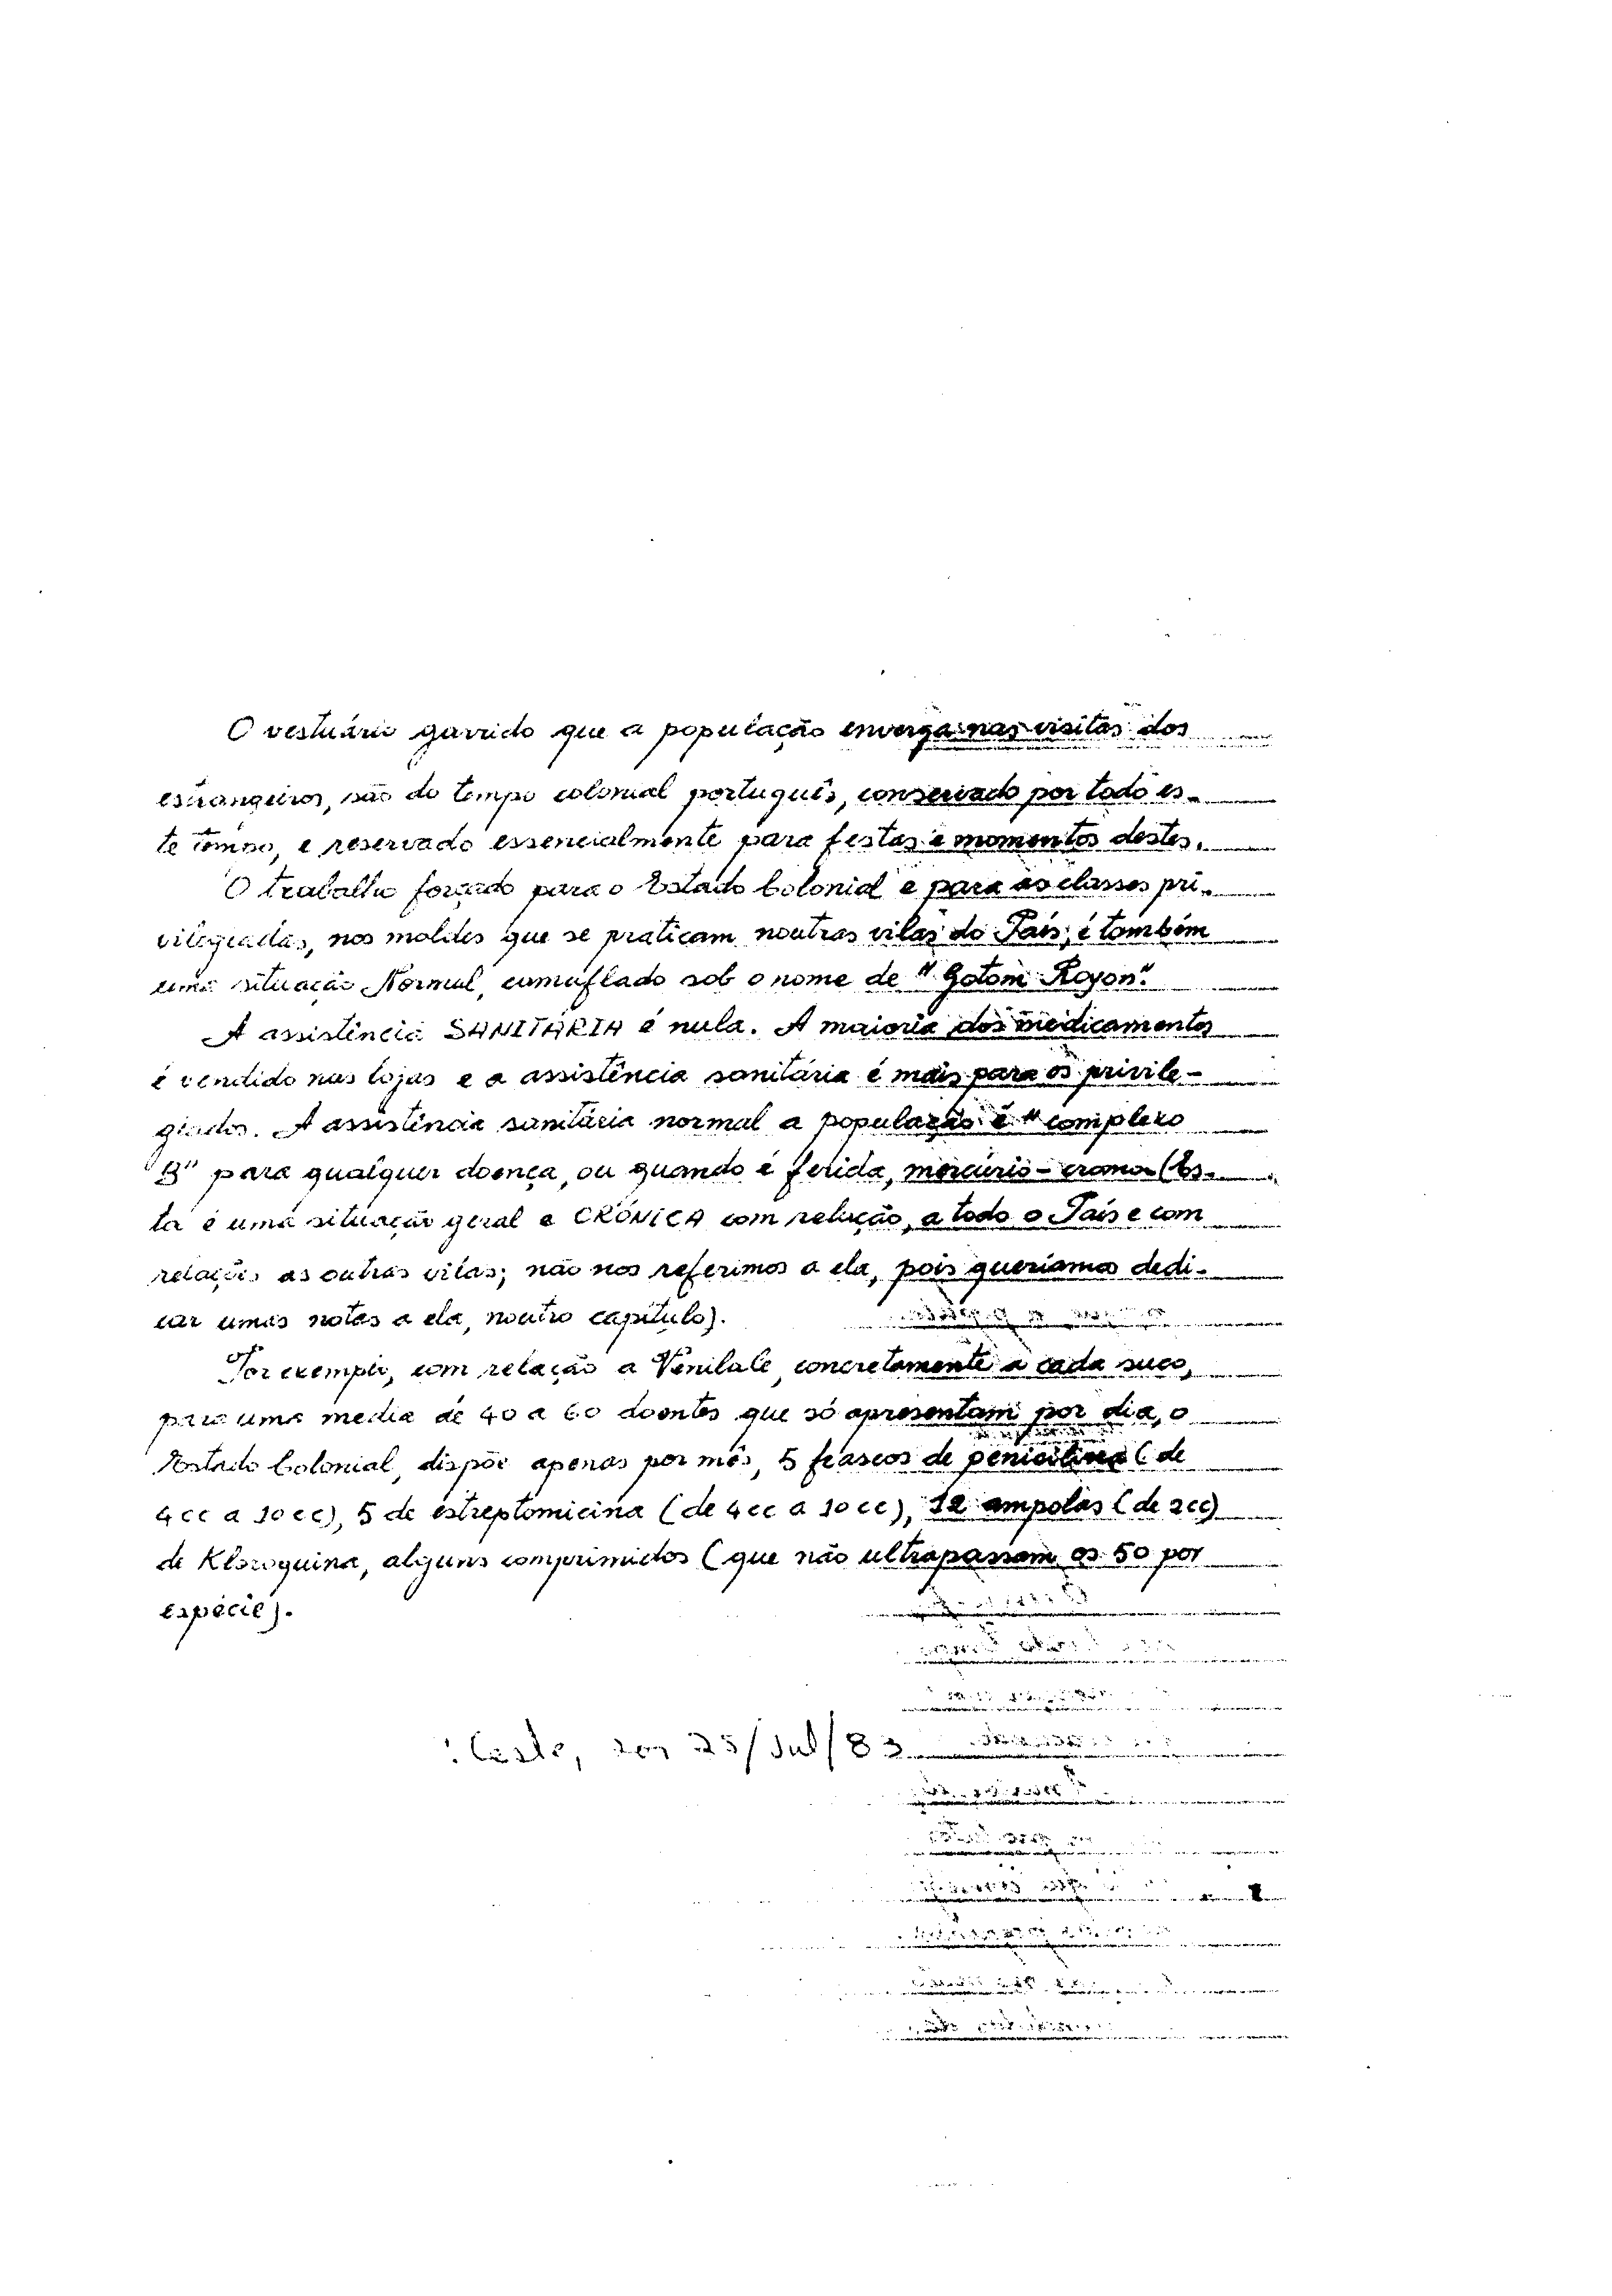 O vestuário garrido que a população enverga nas visitas dos
estrangeiros, são do tempo colonial português, conservado por todo es-
te tempo, e reservado essencialmente para festas e momentos destes.
O trabalho forçado para o Estado Colonial e para as classes pri-
vilegiadas, nos moldes que se praticam noutras vilas do País, é também
uma situação Normal, camuflado sob o nome de "Gotom Royon".
A assistência SANITÁRIA é nula. A maioria dos medicamentos
é vendido nas lojas e a assistência sanitária é mais para os privile-
giados. A assistência sanitária normal a população é "complexo
B" para qualquer doença, ou quando é ferida, mercúrio-cromo (Es-
ta é uma situação geral e CRÓNICA com relação, a todo o País e com
relações as outras vilas; não nos referimos a ela, pois queríamos dedi-
car umas notas a ela, noutro capítulo).
Por exemplo, com relação a Venilale, concretamente a cada suco,
para uma media de 40 a 60 doentes que só apresentam por dia, o
Estado Colonial, dispõe apenas por mês, 5 frascos de penicilina (de
4cc a 10cc), 5 de estreptomicina (de 4cc a 10cc), 12 ampolas (de 2cc)
de Kloroquina, alguns comprimidos (que não ultrapassam os 50 por
espécie).
Leste, 25/Jul/83